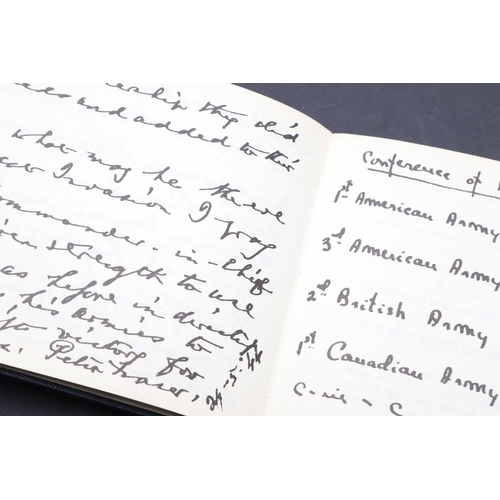 ership they did
and added to their
what may be the
Invasion I pray
Commander-in-Chief
strength to use
as before in
his armies to
victory for
Peter Fraser,
Conference of
1st American Army
3rd American Army
2nd British Army
1st Canadian Army